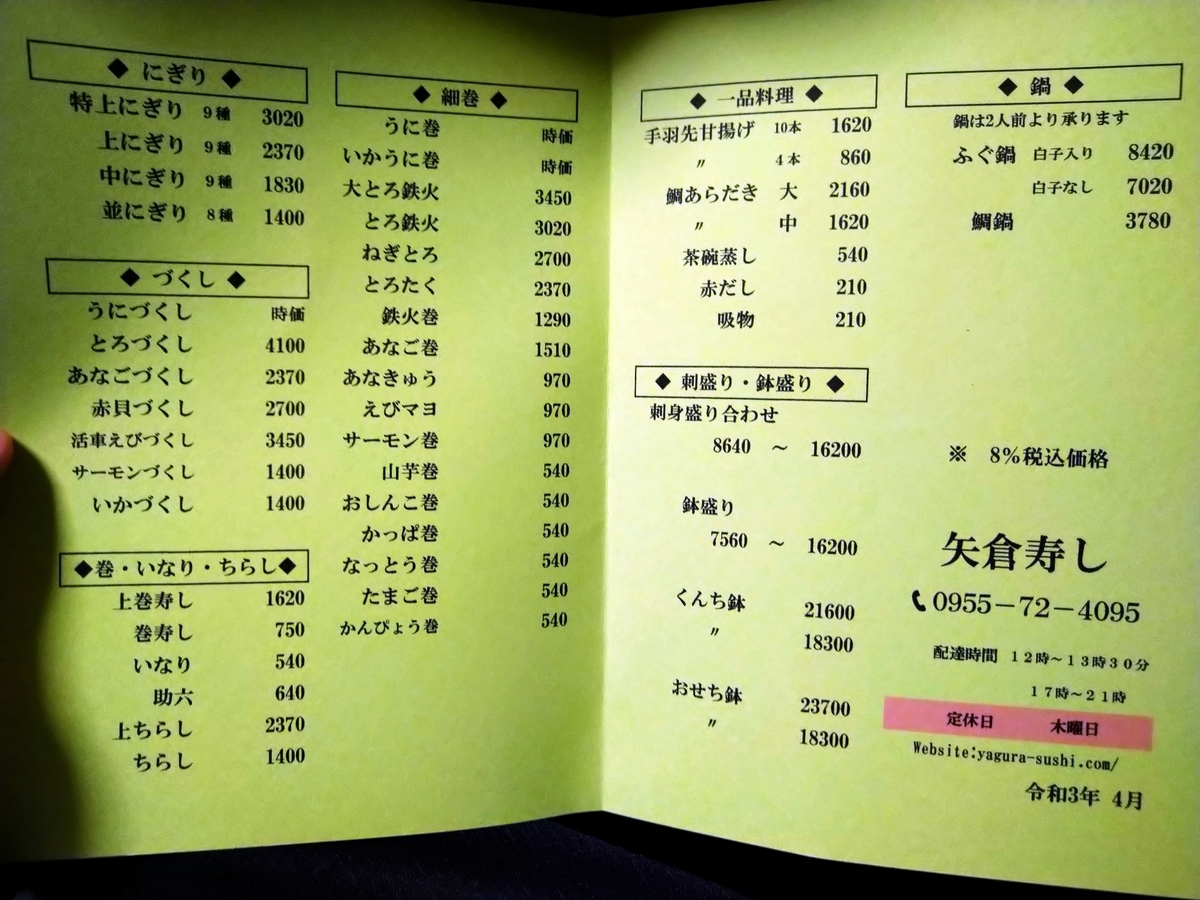 ◆ にぎり ◆
特上にぎり 9種 3020
上にぎり 9種 2370
中にぎり 9種 1830
並にぎり 8種 1400
◆ づくし ◆
うにづくし 時価
とろづくし 4100
あなごづくし 2370
赤貝づくし 2700
活車えびづくし 3450
サーモンづくし 1400
いかづくし 1400
◆巻・いなり・ちらし◆
上巻寿し 1620
巻寿し 750
いなり 540
助六 640
上ちらし 2370
ちらし 1400
◆ 細巻 ◆
うに巻 時価
いかうに巻 時価
大とろ鉄火 3450
とろ鉄火 3020
ねぎとろ 2700
とろたく 2370
鉄火巻 1290
あなご巻 1510
あなきゅう 970
えびマヨ 970
サーモン巻 970
山芋巻 540
おしんこ巻 540
かっぱ巻 540
なっとう巻 540
たまご巻 540
かんぴょう巻 540
◆ 一品料理 ◆
手羽先甘揚げ 10本 1620
〃 4本 860
鯛あらだき 大 2160
〃 中 1620
茶碗蒸し 540
赤だし 210
吸物 210
◆ 刺盛り・鉢盛り ◆
刺身盛り合わせ
8640 ～ 16200
鉢盛り
7560 ～ 16200
くんち鉢 21600
〃 18300
おせち鉢 23700
〃 18300
◆ 鍋 ◆
鍋は2人前より承ります
ふぐ鍋 白子入り 8420
白子なし 7020
鯛鍋 3780
※ 8%税込価格
矢倉寿し
0955－72－4095
配達時間 12時～13時30分
17時～21時
定休日 木曜日
Website:yagura-sushi.com/
令和3年 4月